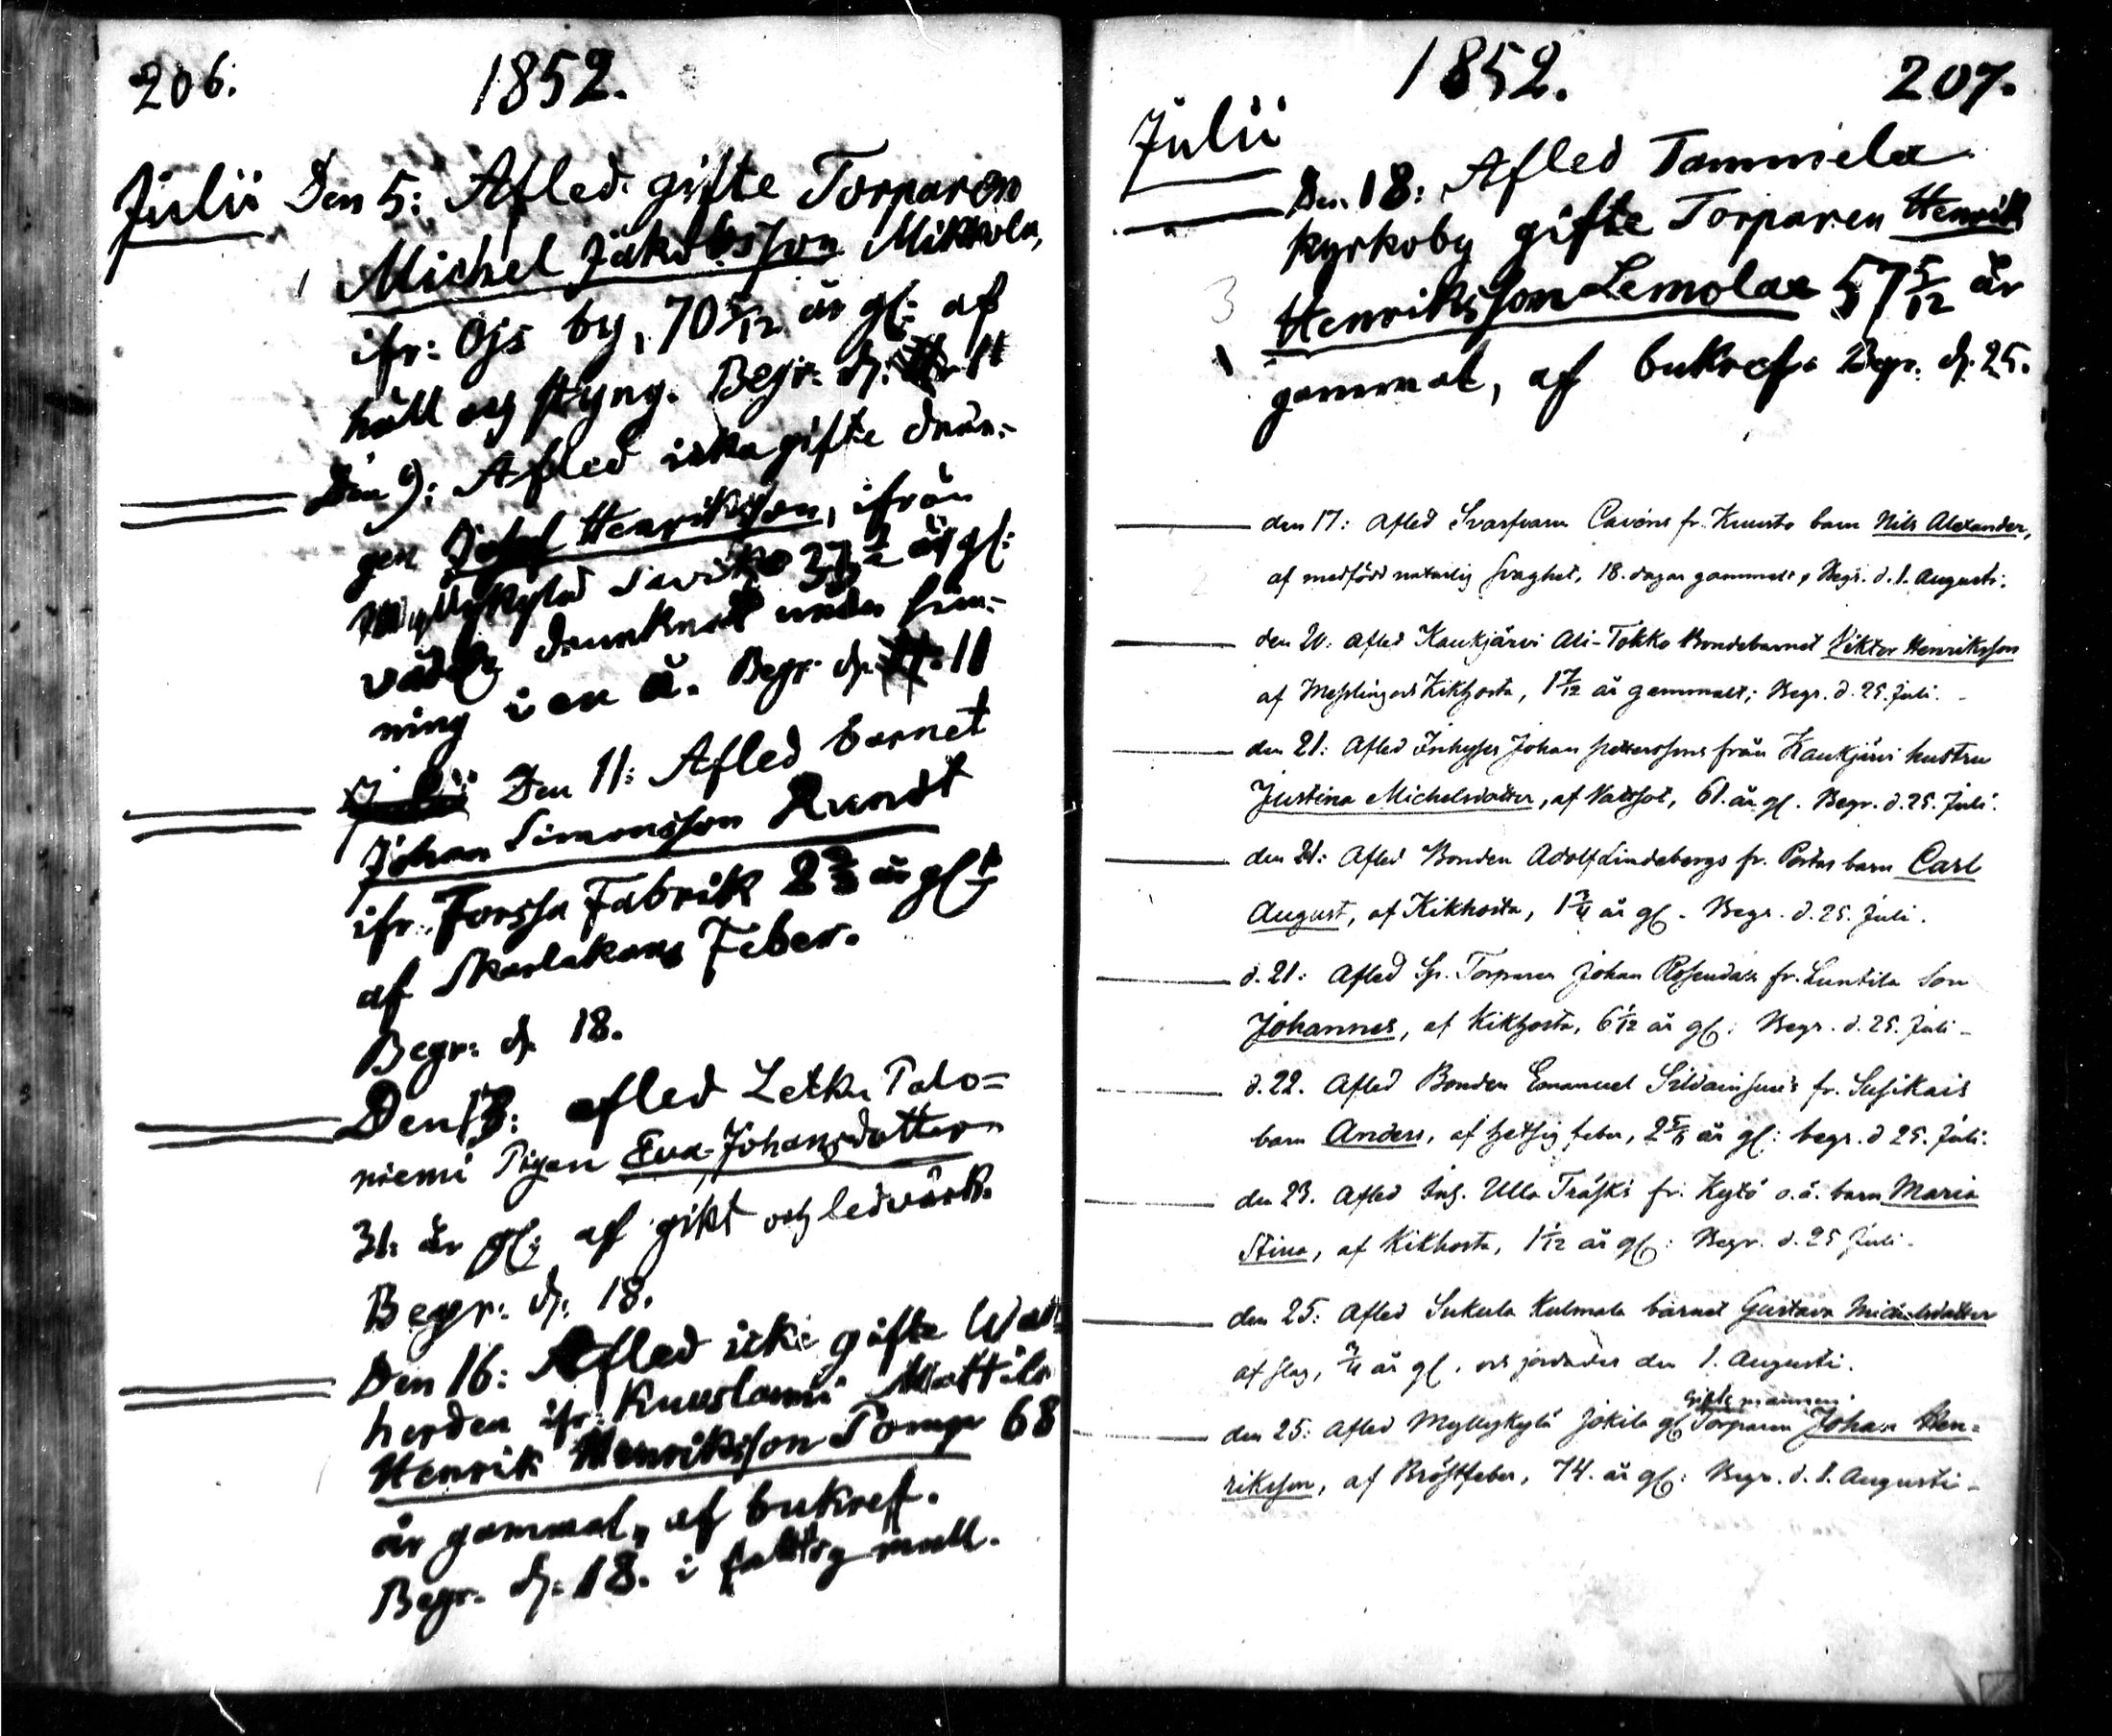 206.
1852.
Julii Den 5: Afled gifte Torparen
Michel Jakobsson Mikkola,
ifr: Ojs by, 70 5/12 år gl: af
håll och styng. Begr. d. 11
Den 9: Afled icke gifte drän-
gen Henriksson, ifrån
Myllykylä 37 1/2 år gl:
våd drunknat under sim-
ning i en å. Begr. d. 11
Den 11: Afled barnet
Johan Simonsson Rundt
ifr. Forssa Fabrik 2 2/3 år gl:
af Skarlakans Feber.
Begr: d. 18.
Den 13: afled Letku Talo-
niemi Pigan Eva Johansdotter
31: år gl: af gikt och ledvärk.
Begr: d. 18.
Den 16: Afled icke gifte
herden ifr: Mattila
Henrik Henriksson 68
år gammal, af bukref.
Begr. d: 18. i fattig mull.
1852.
207.
Julii
Den 18: Afled Tammela
kyrkoby gifte Torparen Henrik
Henriksson Lemola 57 5/12 år
gammal, af bukref. Begr. d. 25.
den 17: Afled Svarfvaren Cavéns fr. Kuusto barn Nils Alexander,
af medfödd naturlig svaghet, 18. dagar gammalt, Begr. d. 1. Augusti.
den 20: Afled Kaukjärvi Ali-Tokko Bondebarnet Viktor Henriksson
af Messling och Kikhosta, 1 7/12 år gammalt; Begr. d. 25. Juli.
den 21: Afled Inhyses Johan Petterssons från Kaukjärvi hustru
Justina Michelsdotter, af Vattsot, 61. år gl. Begr. d. 25. Juli.
den 21: Afled Bonden Adolf Lindebergs fr. Portas barn Carl
August, af Kikhosta, 1 3/4 år gl. Begr. d. 25. Juli.
d. 21: Afled Torparen Johan Rosendals fr. Luntila Son
Johannes, af Kikhosta, 6 1/12 år gl: Begr. d. 25. Juli
d. 22. Afled Bonden Emanuel fr. Susikais
barn Anders, af hetsig feber, 2 5/6 år gl: begr. d 25. Juli.
den 23. Afled Inh. Ulla Träski fr. Kytö o.ä. barn Maria
Stina, af Kikhosta, 1 1/12 år gl: Begr. d. 25 Juli.
den 25: Afled Sukula Kulmala barnet Gustava Michelsdotter
af slag, 3/4 år gl. och jordades den 1. Augusti.
gifte mannen
den 25: Afled Myllykylä Jokila gl Torparen Johan Hen-
riksson, af Bröstfeber, 74. år gl: Begr. d. 1. Augusti